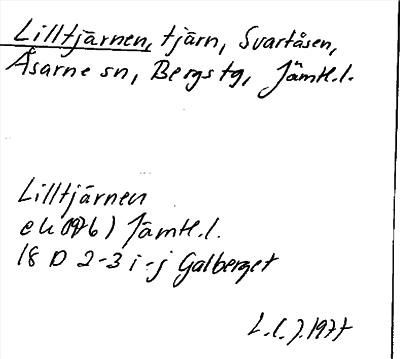 Lilltjärnen, tjärn, Svartåsen,
Åsarne sn, Bergs tg, Jämtl.l.
Lilltjärnen
ek (1976) Jämtl.l.
18 D 2-3 i-j Galberget
L.l.J. 1977